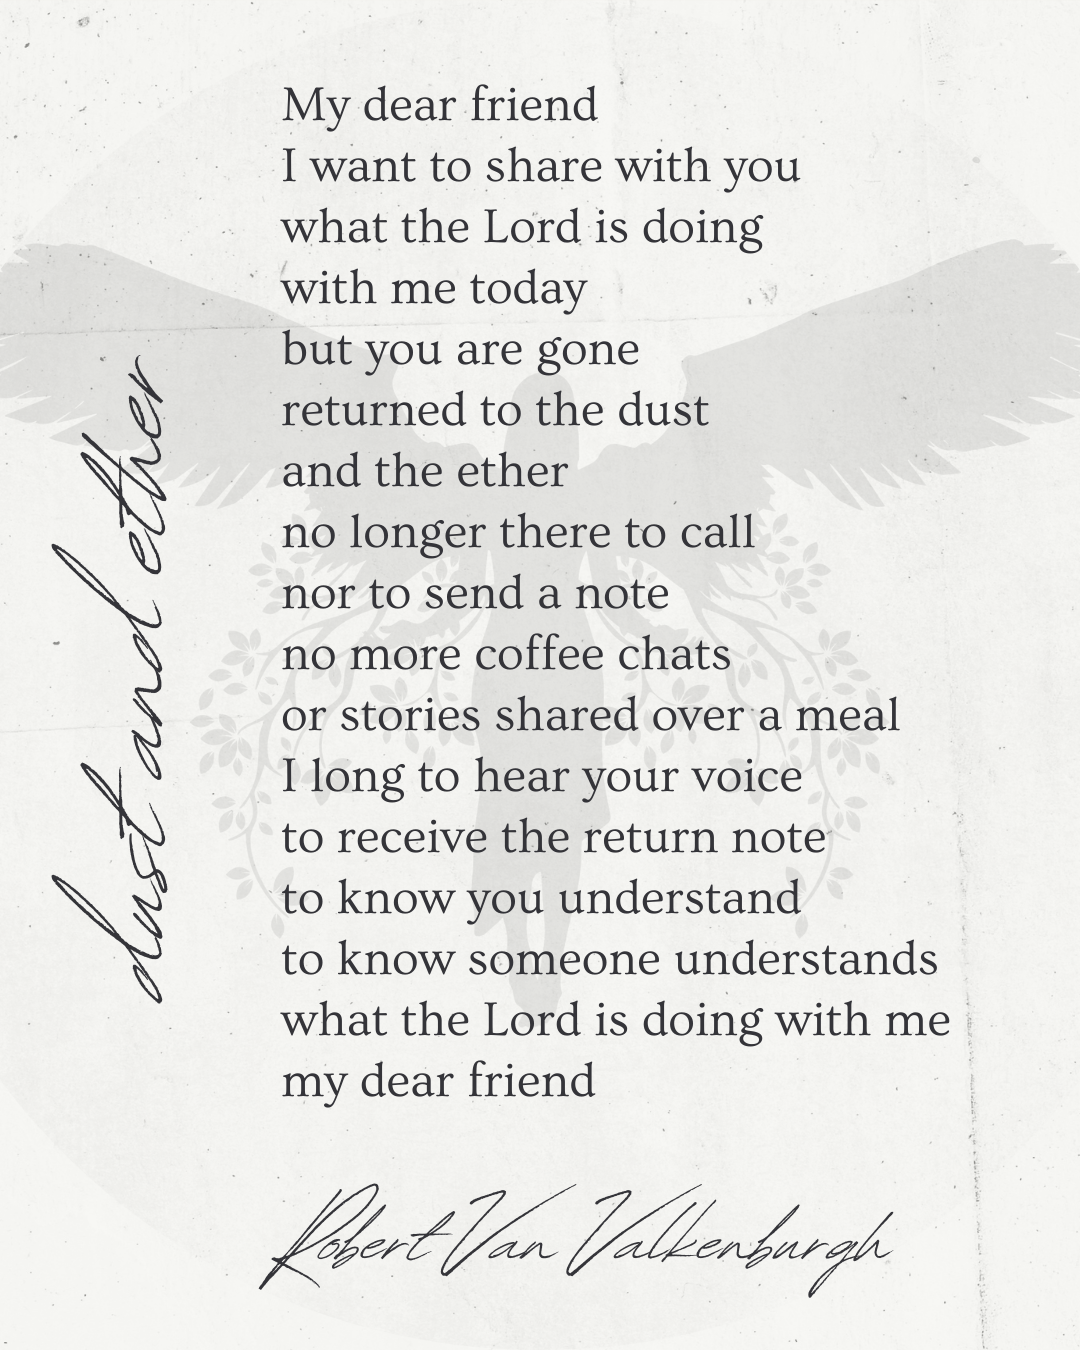 dust and ether
My dear friend
I want to share with you
what the Lord is doing
with me today
but you are gone
returned to the dust
and the ether
no longer there to call
nor to send a note
no more coffee chats
or stories shared over a meal
I long to hear your voice
to receive the return note
to know you understand
to know someone understands
what the Lord is doing with me
my dear friend
Robert Van Valkenburgh